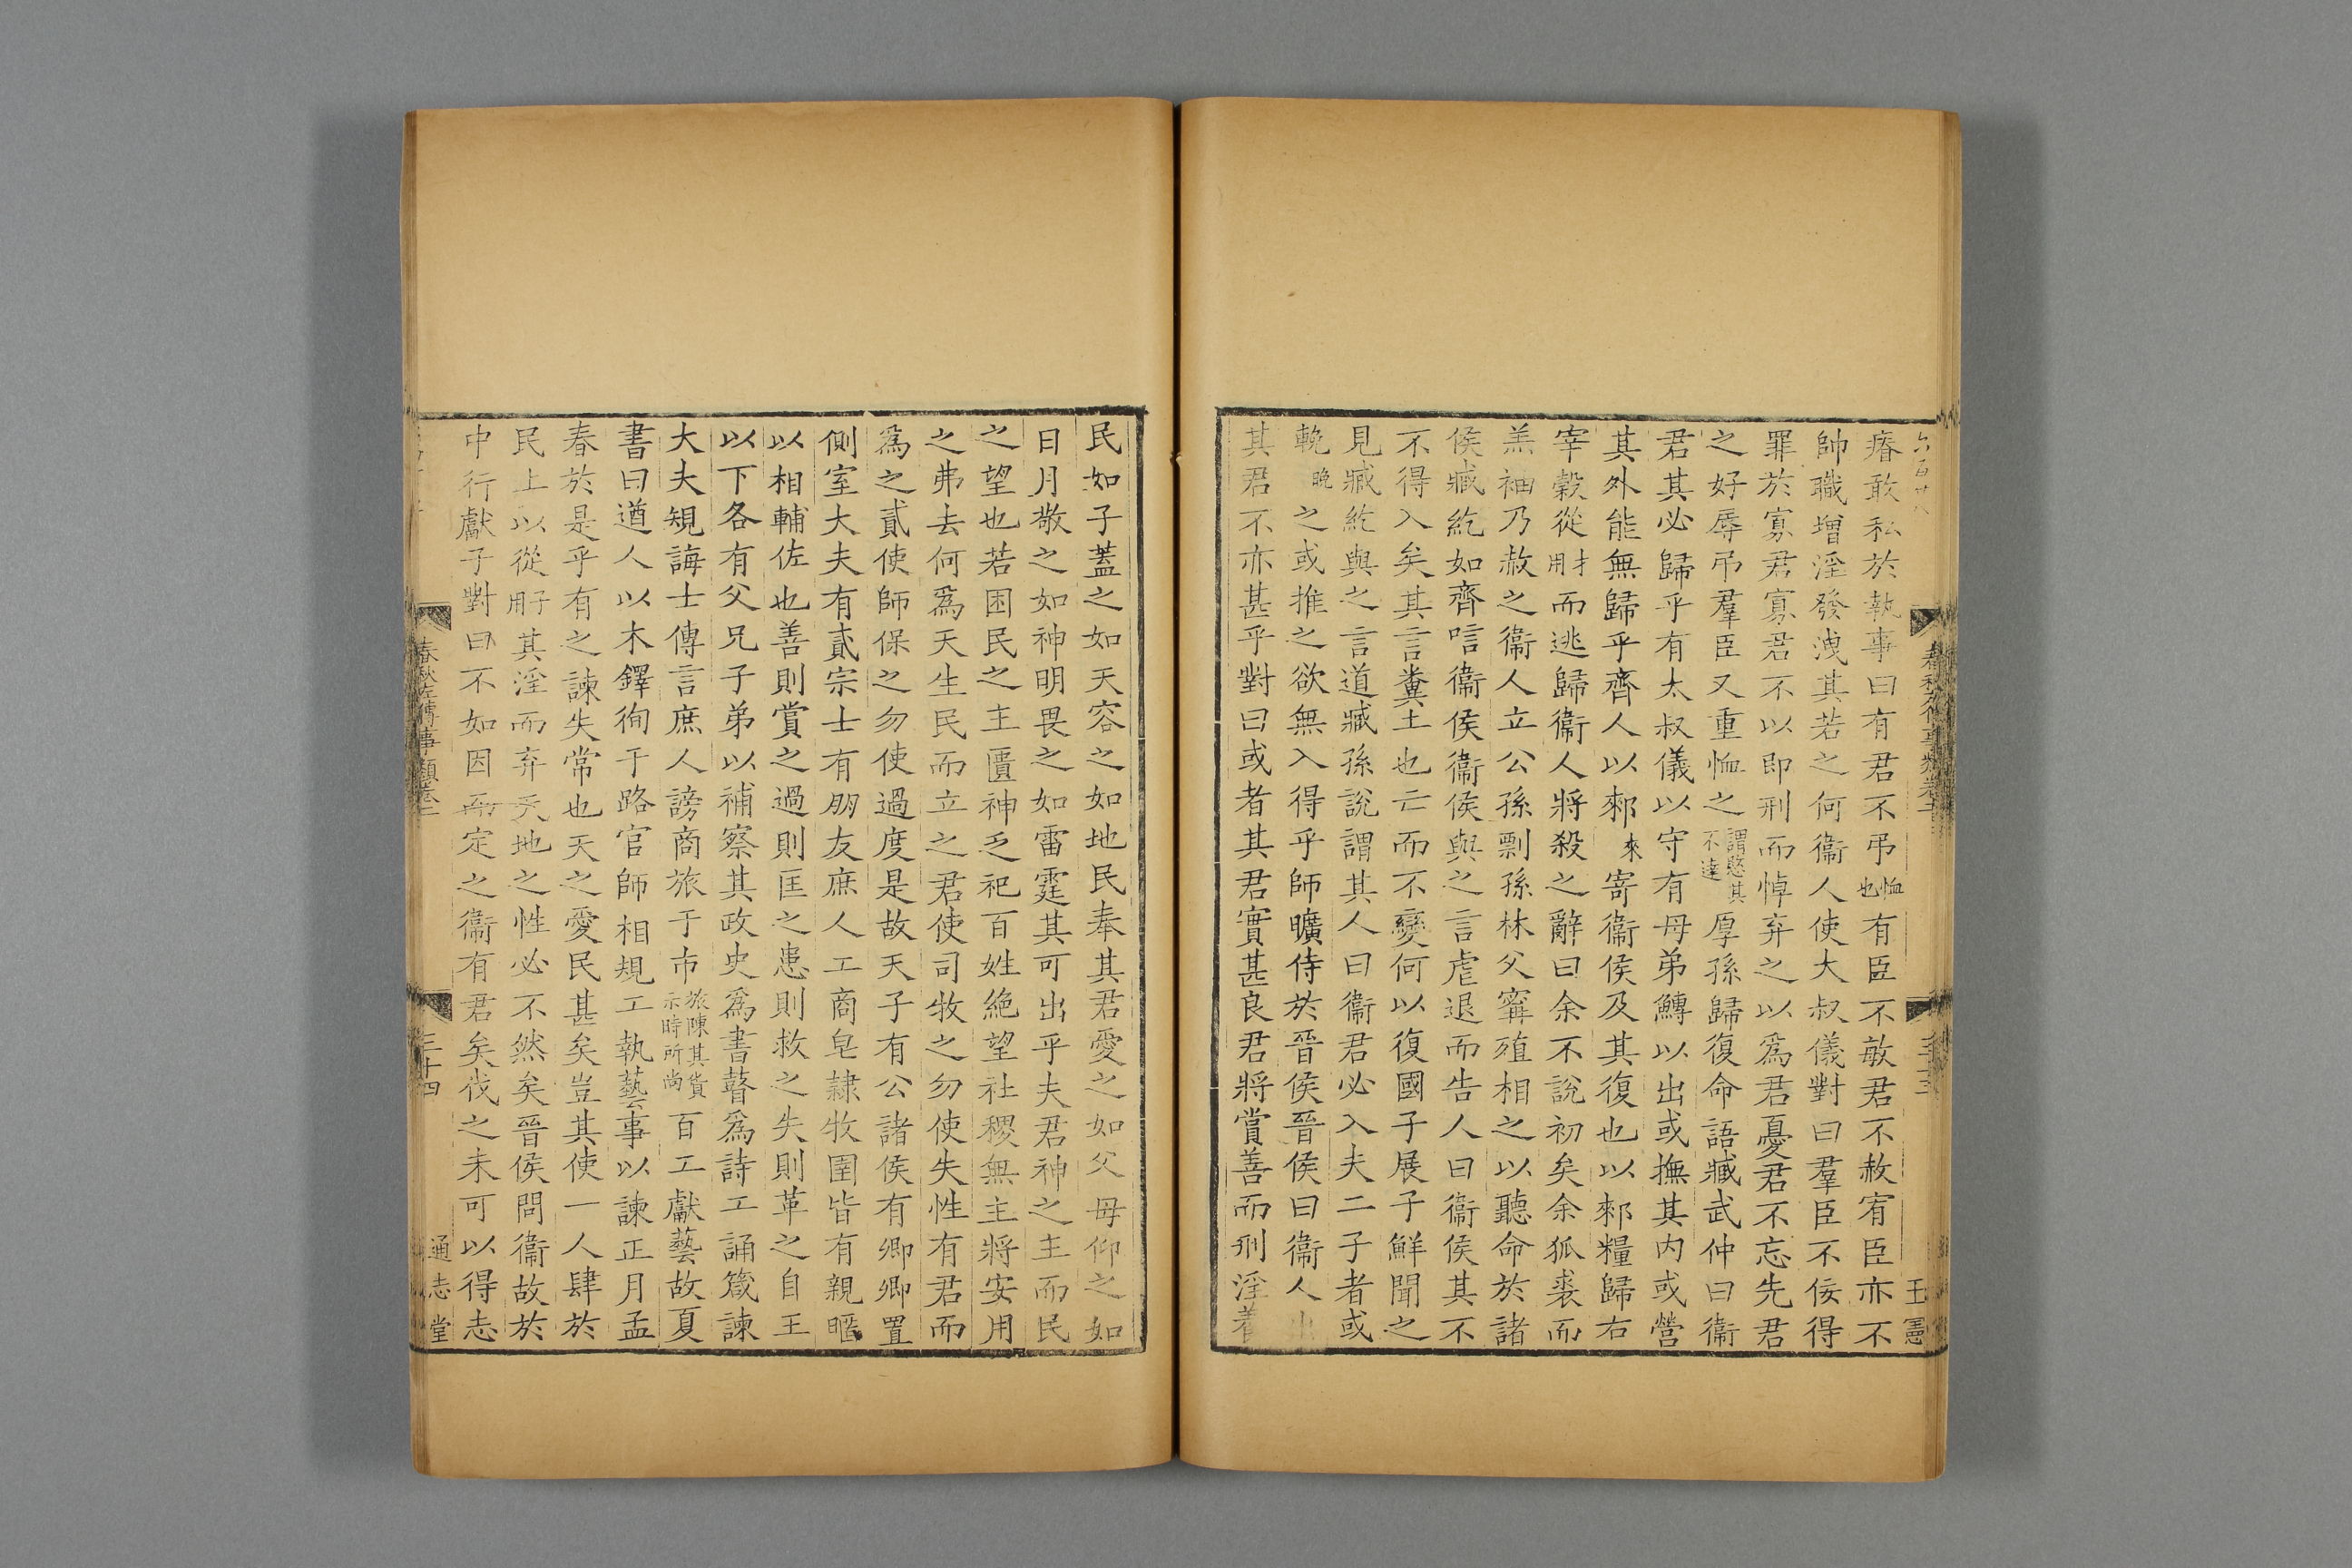 六百廿八
瘠敢私於執事曰有君不弔恤也有臣不敏君不赦宥臣亦不
帥職增淫發洩其若之何衞人使大叔儀對曰羣臣不佞得
罪於寡君寡君不以即刑而悼弃之以爲君憂君不忘先君
之好辱弔羣臣又重恤之謂愍其不達厚孫歸復命語臧武仲曰衞
君其必歸乎有太叔儀以守有母弟鱄以出或撫其内或營
其外能無歸乎齊人以郲來寄衞侯及其復也以郲糧歸右
宰穀從用才而逃歸衞人將殺之辭曰余不說初矣余狐裘而
羔袖乃赦之衞人立公孫剽孫林父甯殖相之以聽命於諸
侯臧紇如齊唁衞侯衞侯與之言虐退而告人曰衞侯其不
不得入矣其言糞土也亡而不變何以復國子展子鮮聞之
見臧紇與之言道臧孫說謂其人曰衞君必入夫二子者或
輓晚之或推之欲無入得乎師曠侍於晉侯晉侯曰衞人出
其君不亦甚乎對曰或者其君實甚良君將賞善而刑淫養
王憲
民如子蓋之如天容之如地民奉其君愛之如父母仰之如
日月敬之如神明畏之如雷霆其可出乎夫君神之主而民
之望也若困民之主匱神乏祀百姓絶望社稷無主將安用
之弗去何爲天生民而立之君使司牧之勿使失性有君而
爲之貳使師保之勿使過度是故天子有公諸侯有卿卿置
側室大夫有貳宗士有朋友庶人工商皂隸牧圉皆有親暱
以相輔佐也善則賞之過則匡之患則救之失則革之自王
以下各有父兄子弟以補察其政史爲書瞽爲詩工誦箴諫
大夫規誨士傳言庶人謗商旅于市旅陳其貨示時所尚百工獻藝故夏
書曰遒人以木鐸徇于路官師相規工執藝事以諫正月孟
春於是乎有之諫失常也天之愛民甚矣豈其使一人肆於
民上以從用子其淫而弃天地之性必不然矣晉侯問衞故於
中行獻子對曰不如因而定之衞有君矣伐之未可以得志
春秋左傳事類卷二
三十四
通志堂